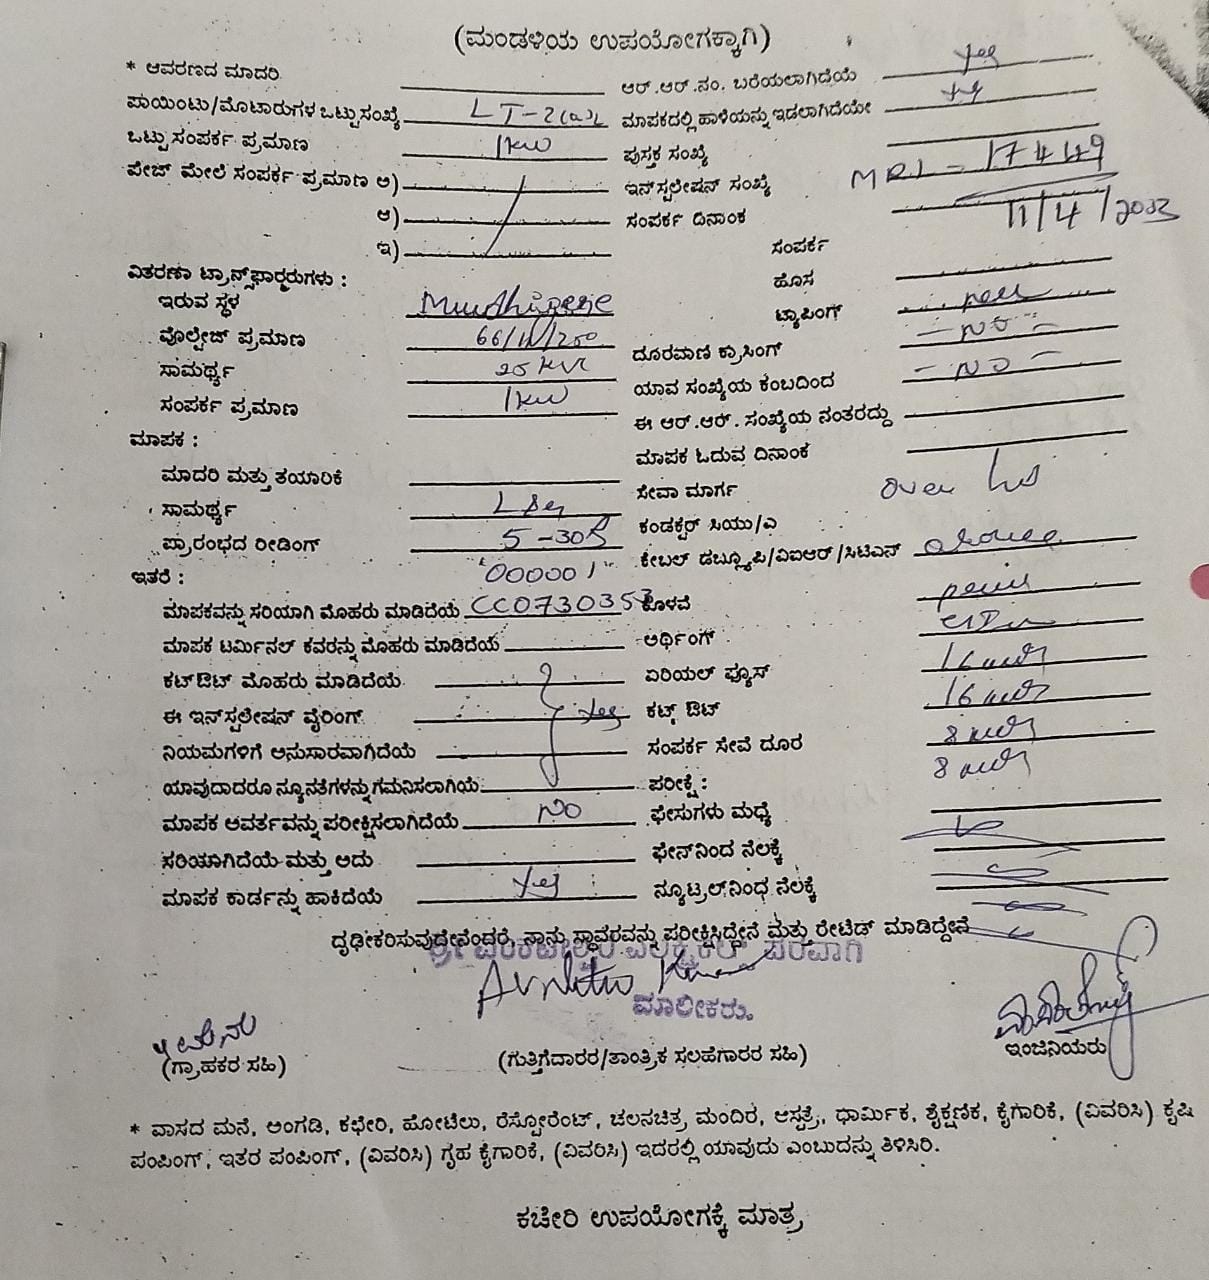 (ಮಂಡಳಿಯ ಉಪಯೋಗಕ್ಕಾಗಿ)
* ಆವರಣದ ಮಾದರಿ ಆರ್.ಆರ್.ನಂ. ಬರೆಯಲಾಗಿದೆಯೆ yes
ಪಾಯಿಂಟು/ಮೋಟಾರುಗಳ ಒಟ್ಟು ಸಂಖ್ಯೆ LT-2(a)ಮಾಪಕದಲ್ಲಿ ಹಾಳೆಯನ್ನು ಇಡಲಾಗಿದೆಯೇ yes
ಒಟ್ಟು ಸಂಪರ್ಕ ಪ್ರಮಾಣ 1kw ಪುಸ್ತಕ ಸಂಖ್ಯೆ
ಪೇಜ್ ಮೇಲೆ ಸಂಪರ್ಕ ಪ್ರಮಾಣ ಅ) ಇನ್‌ಸ್ಟಲೇಷನ್ ಸಂಖ್ಯೆ MRL - 17449
ಆ) ಸಂಪರ್ಕ ದಿನಾಂಕ 11/4/2013
ಇ) ಸಂಪರ್ಕ
ವಿತರಣಾ ಟ್ರಾನ್ಸ್‌ಫಾರ್‍ಮರುಗಳು : ಹೊಸ
ಇರುವ ಸ್ಥಳ ಟ್ಯಾಪಿಂಗ್
ವೊಲ್ಟೇಜ್ ಪ್ರಮಾಣ 66/11/250 ದೂರವಾಣಿ ಕ್ರಾಸಿಂಗ್ - NO -
ಸಾಮರ್ಥ್ಯ 25 KVA ಯಾವ ಸಂಖ್ಯೆಯ ಕಂಬದಿಂದ - NO -
ಸಂಪರ್ಕ ಪ್ರಮಾಣ 1kw ಈ ಆರ್.ಆರ್. ಸಂಖ್ಯೆಯ ನಂತರದ್ದು
ಮಾಪಕ : ಮಾಪಕ ಓದುವ ದಿನಾಂಕ
ಮಾದರಿ ಮತ್ತು ತಯಾರಿಕೆ ಸೇವಾ ಮಾರ್ಗ over
ಸಾಮರ್ಥ್ಯ ಕಂಡಕ್ಟರ್ ಸಿಯು/ಎ
ಪ್ರಾರಂಭದ ರೀಡಿಂಗ್ 5-30A ಕೇಬಲ್ ಡಬ್ಲ್ಯೂಪಿ/ವಿಐಆರ್/ಸಿಟಿಎನ್
ಇತರೆ : "000001"
ಮಾಪಕವನ್ನು ಸರಿಯಾಗಿ ಮೊಹರು ಮಾಡಿದೆಯೆ CC0730353 ಕೊಳವೆ
ಮಾಪಕ ಟರ್ಮಿನಲ್ ಕವರನ್ನು ಮೊಹರು ಮಾಡಿದೆಯೆ ಅರ್ಥಿಂಗ್
ಕಟ್‌ಔಟ್ ಮೊಹರು ಮಾಡಿದೆಯೆ ಏರಿಯಲ್ ಫ್ಯೂಸ್ 16
ಈ ಇನ್‌ಸ್ಟಲೇಷನ್ ವೈರಿಂಗ್ yes ಕಟ್ ಔಟ್ 16
ನಿಯಮಗಳಿಗೆ ಅನುಸಾರವಾಗಿದೆಯೆ ಸಂಪರ್ಕ ಸೇವೆ ದೂರ 8
ಯಾವುದಾದರೂ ನ್ಯೂನತೆಗಳನ್ನು ಗಮನಿಸಲಾಗಿಯೆ ಪರೀಕ್ಷೆ : 8
ಮಾಪಕ ಆವರ್ತವನ್ನು ಪರೀಕ್ಷಿಸಲಾಗಿದೆಯೆ NO ಫೇಸುಗಳು ಮಧ್ಯೆ
ಸರಿಯಾಗಿದೆಯೆ ಮತ್ತು ಅದು ಫೇಸ್‌ನಿಂದ ನೆಲಕ್ಕೆ
ಮಾಪಕ ಕಾರ್ಡನ್ನು ಹಾಕಿದೆಯೆ yes ನ್ಯೂಟ್ರಲ್‌ನಿಂಧ ನೆಲಕ್ಕೆ
ದೃಢೀಕರಿಸುವುದೇನೆಂದರೆ, ನಾನು ಸ್ಥಾವರವನ್ನು ಪರೀಕ್ಷಿಸಿದ್ದೇನೆ ಮತ್ತು ರೇಟಿಡ್ ಮಾಡಿದ್ದೇನೆ
ಪರವಾಗಿ
ಮಾಲೀಕರು.
(ಗ್ರಾಹಕರ ಸಹಿ) (ಗುತ್ತಿಗೆದಾರರ/ತಾಂತ್ರಿಕ ಸಲಹೆಗಾರರ ಸಹಿ) ಇಂಜಿನಿಯರು
* ವಾಸದ ಮನೆ, ಅಂಗಡಿ, ಕಛೇರಿ, ಹೋಟೆಲು, ರೆಸ್ಟೋರೆಂಟ್, ಚಲನಚಿತ್ರ ಮಂದಿರ, ಆಸ್ಪತ್ರೆ, ಧಾರ್ಮಿಕ, ಶೈಕ್ಷಣಿಕ, ಕೈಗಾರಿಕೆ, (ವಿವರಿಸಿ) ಕೃಷಿ
ಪಂಪಿಂಗ್, ಇತರ ಪಂಪಿಂಗ್, (ವಿವರಿಸಿ) ಗೃಹ ಕೈಗಾರಿಕೆ, (ವಿವರಿಸಿ) ಇದರಲ್ಲಿ ಯಾವುದು ಎಂಬುದನ್ನು ತಿಳಿಸಿರಿ.
ಕಚೇರಿ ಉಪಯೋಗಕ್ಕೆ ಮಾತ್ರ